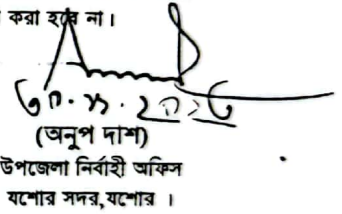 করা হবে না।
৩০.১১.২০১৬
(অনুপ দাশ)
উপজেলা নির্বাহী অফিস
যশোর সদর,যশোর ।